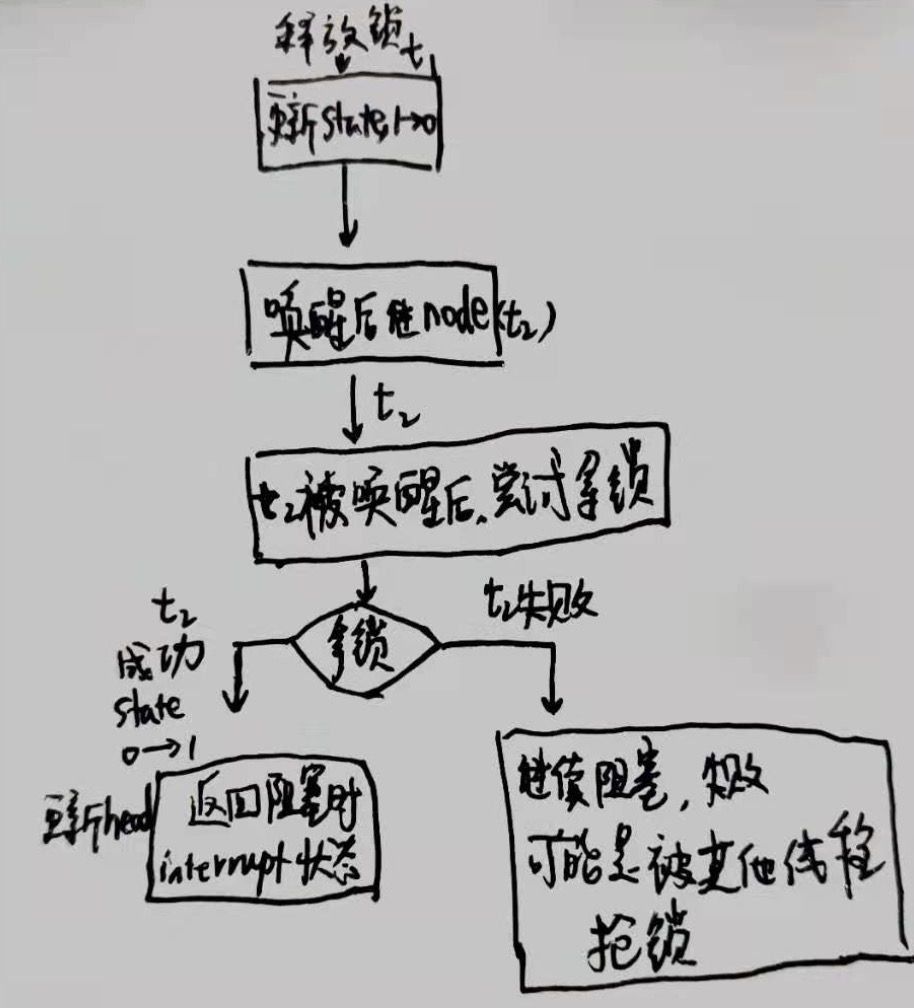 释放锁 t
更新state,1→0
唤醒后继node(t₂)
t₂
t₂被唤醒后,尝试拿锁
拿锁
t₂失败
t₂
成功
state
0→1
更新head
返回阻塞时
interrupt状态
继续阻塞,失败
可能是被其他线程
抢锁